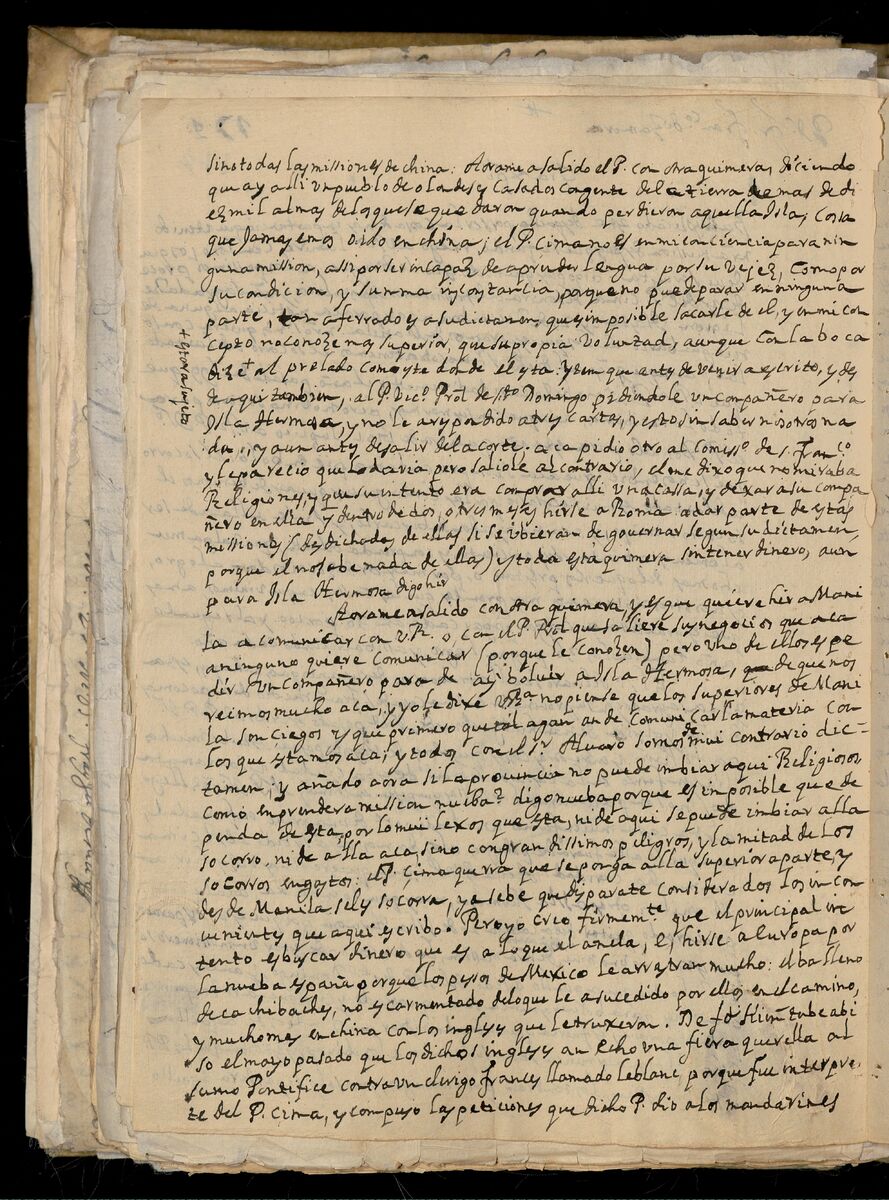 sino todas las missiones de china: Aorame a salido el P. con otra quimera, diciendo
que ay alli un pueblo de olondeses casados con gente de la tierra de mas de di
ez mil almas de los que se quedaron quando perdieron aquella Isla, Cosa
que Jamas emos oido en china; el P. Cima no es en mi conciencia para nin
guna mission, assi por ser incapaz de aprender lengua por su Vejez, Como por
su condicion, y summa inconstancia, porque no puede parar en ninguna
parte, tan aferrado es a su dictamen, que es imposible sacarle de el, y en mi con
cepto no conoze mas superior, que su propia Voluntad, aunque Con la boca
dize + al prelado como este donde el esta: y ten que antes de venir a escrito, y des
+ estara sujeto
de aqui tambien, al P. Vic.º Pro.l de S.to Domingo pidiendole un compañero para
Isla Hermosa, y no le a respondido a tres cartas, y esto sin saber nosotros na
da, y aun antes de salir de la corte. aca pidio otro al Comiss.º de S. Fran.co
y le parecio que lo daria pero saliole al contrario, el me dixo que no miraba
Religiones, y que su intento era comprar alli una cassa, y dexar a su compa
ñero en ella y dentro de dos, o tres meses hirse a Roma a dar parte de estas
missiones (desdichadas de ellas si se ubieran de governar segun su dictamen,
porque el no sabe nada de ellas) y toda esta quimera sin tener dinero, aun
para Isla Hermosa digo hir
Aorame a salido con otra quimera, y es que quiere hir a Mani
la a comunicar con V.R. o con el P. Pro.l que saliere sus negocios que aca
a ninguno quiere Comunicar (porque le Conozen) pero uno de ellos es pe
dir un compañero para de ay bolver a Isla Hermosa, de que nos
reimos mucho aca, y yo le dixe V.R.a no piense que los superiores de Mani
la son ciegos y que primero que tal agan an de Comunicar la materia con
los que estamos aca; y todos con el S.r Alvaro somos de mui contrario dic-
tamen; y añado aora si la provincia no puede imbiar aqui Religiosos
como enprendera mission nueba? digo nueba porque es imposible que de
penda de esta, por lo mui lexos que esta, ni de aqui se puede imbiar alla
socorro, ni de alla aca, sino con grandissimos peligros, y la mitad de los
socorros en gastos: el P. Cima querra que se ponga alla superior aparte, y
desde Manila se les socorra, ya se be que disparate considerados los incon
venientes que aqui escribo. Pero yo creo firmem.te que el principal in
tento es buscar dinero que es a lo que el anela, e hirse a Europa por
la nueba españa porque los pesos de Mexico le arrastran mucho: el ba lleno
de cachibaches, no escarmentado de lo que le a sucedido por ellos en el camino,
y mucho mes en china con los ingleses que le truxeron. De tube abi
so el mayo pasado que los dichos ingleses an echo una fiera querella al
sumo Pontifice contra un clerigo frances llamado leblanc porque fue interpre-
te del P. Cima, y compuso las peticiones que dicho P. dio a los mandarines